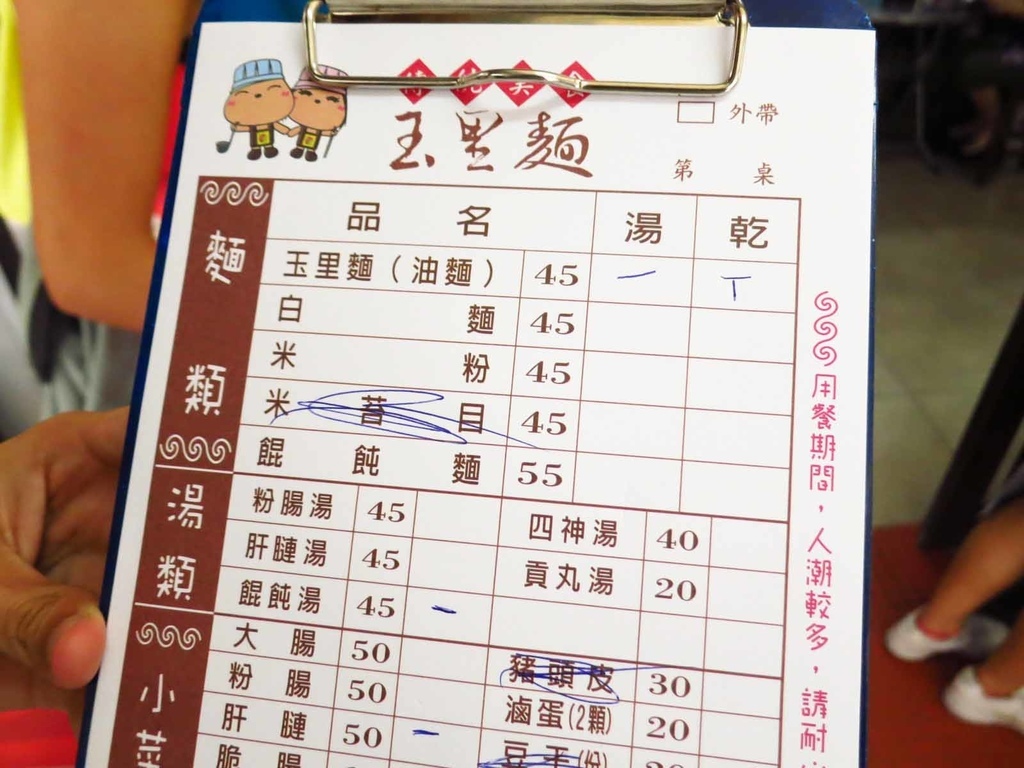 傳統美食
玉里麵
外帶
第 桌
品名 湯 乾
麵類
玉里麵(油麵) 45 一 T
白麵 45
米粉 45
米苔目 45
餛飩麵 55
湯類
粉腸湯 45 四神湯 40
肝膢湯 45 貢丸湯 20
餛飩湯 45 -
小菜
大腸 50 豬頭皮 30
粉腸 50 滷蛋(2顆) 20
肝膢 50 - 豆干(份)
脆腸
用餐期間,人潮較多,請耐